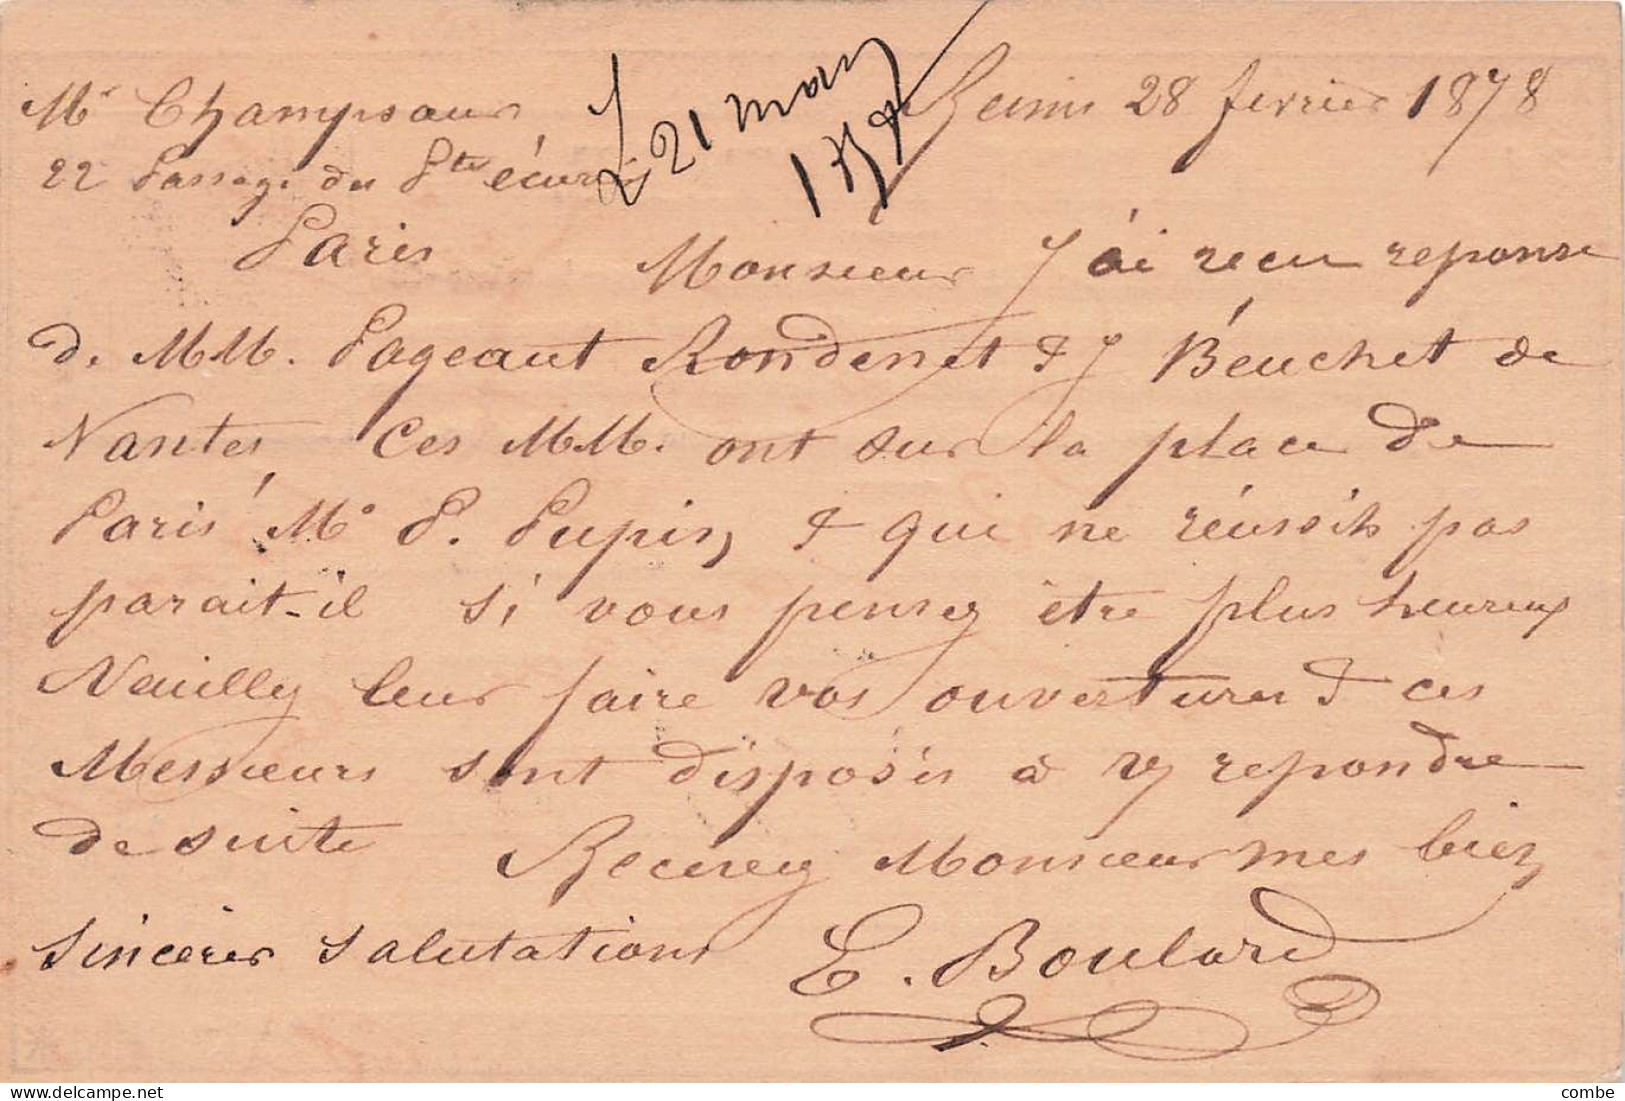 Mr Champsaur
22 Passage des Ptes écuries
Paris
21 mars
1878
Reims 28 fevrier 1878
Monsieur J'ai recu reponse
de MM. Pageaut Rondenet & J Béuchet de
Nantes Ces MM. ont sur la place de
Paris Mr P. Pupin, & qui ne réussit pas
parait-il Si vous pensez être plus heureux
Veuillez leur faire vos ouvertures & ces
Messieurs sont disposés à y repondre
de suite Recevez Monsieur mes bien
Sincères Salutations E. Boulard
combe